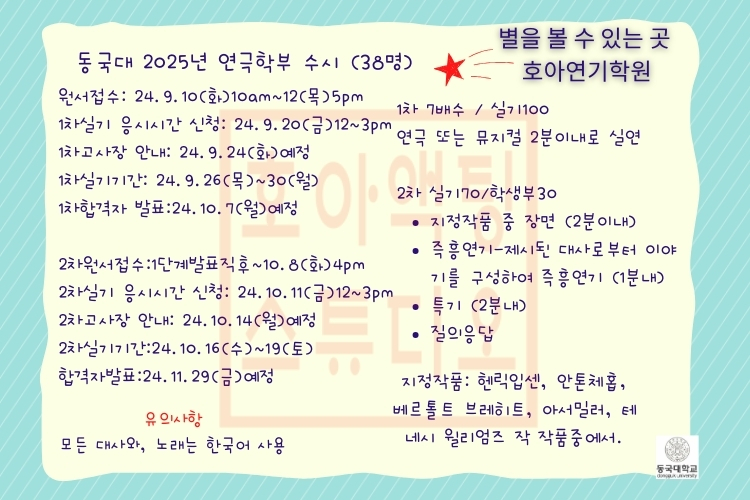 별을 볼 수 있는 곳
호아연기학원
동국대 2025년 연극학부 수시 (38명)
원서접수: 24.9.10(화)10am~12(목)5pm
1차실기 응시시간 신청: 24.9.20(금)12~3pm
1차고사장 안내: 24.9.24(화)예정
1차실기기간: 24.9.26(목)~30(월)
1차합격자 발표:24.10.7(월)예정
2차원서접수:1단계발표직후~10.8(화)4pm
2차실기 응시시간 신청: 24.10.11(금)12~3pm
2차고사장 안내: 24.10.14(월)예정
2차실기기간:24.10.16(수)~19(토)
합격자발표:24.11.29(금)예정
유의사항
모든 대사와, 노래는 한국어 사용
1차 7배수 / 실기100
연극 또는 뮤지컬 2분이내로 실연
2차 실기70/학생부30
• 지정작품 중 장면 (2분이내)
• 즉흥연기-제시된 대사로부터 이야
기를 구성하여 즉흥연기 (1분내)
• 특기 (2분내)
• 질의응답
지정작품: 헨릭입센, 안톤체홉,
베르톨트 브레히트, 아서밀러, 테
네시 윌리엄즈 작 작품중에서.
호아·액팅
스튜디오
동국대학교
dongguk university